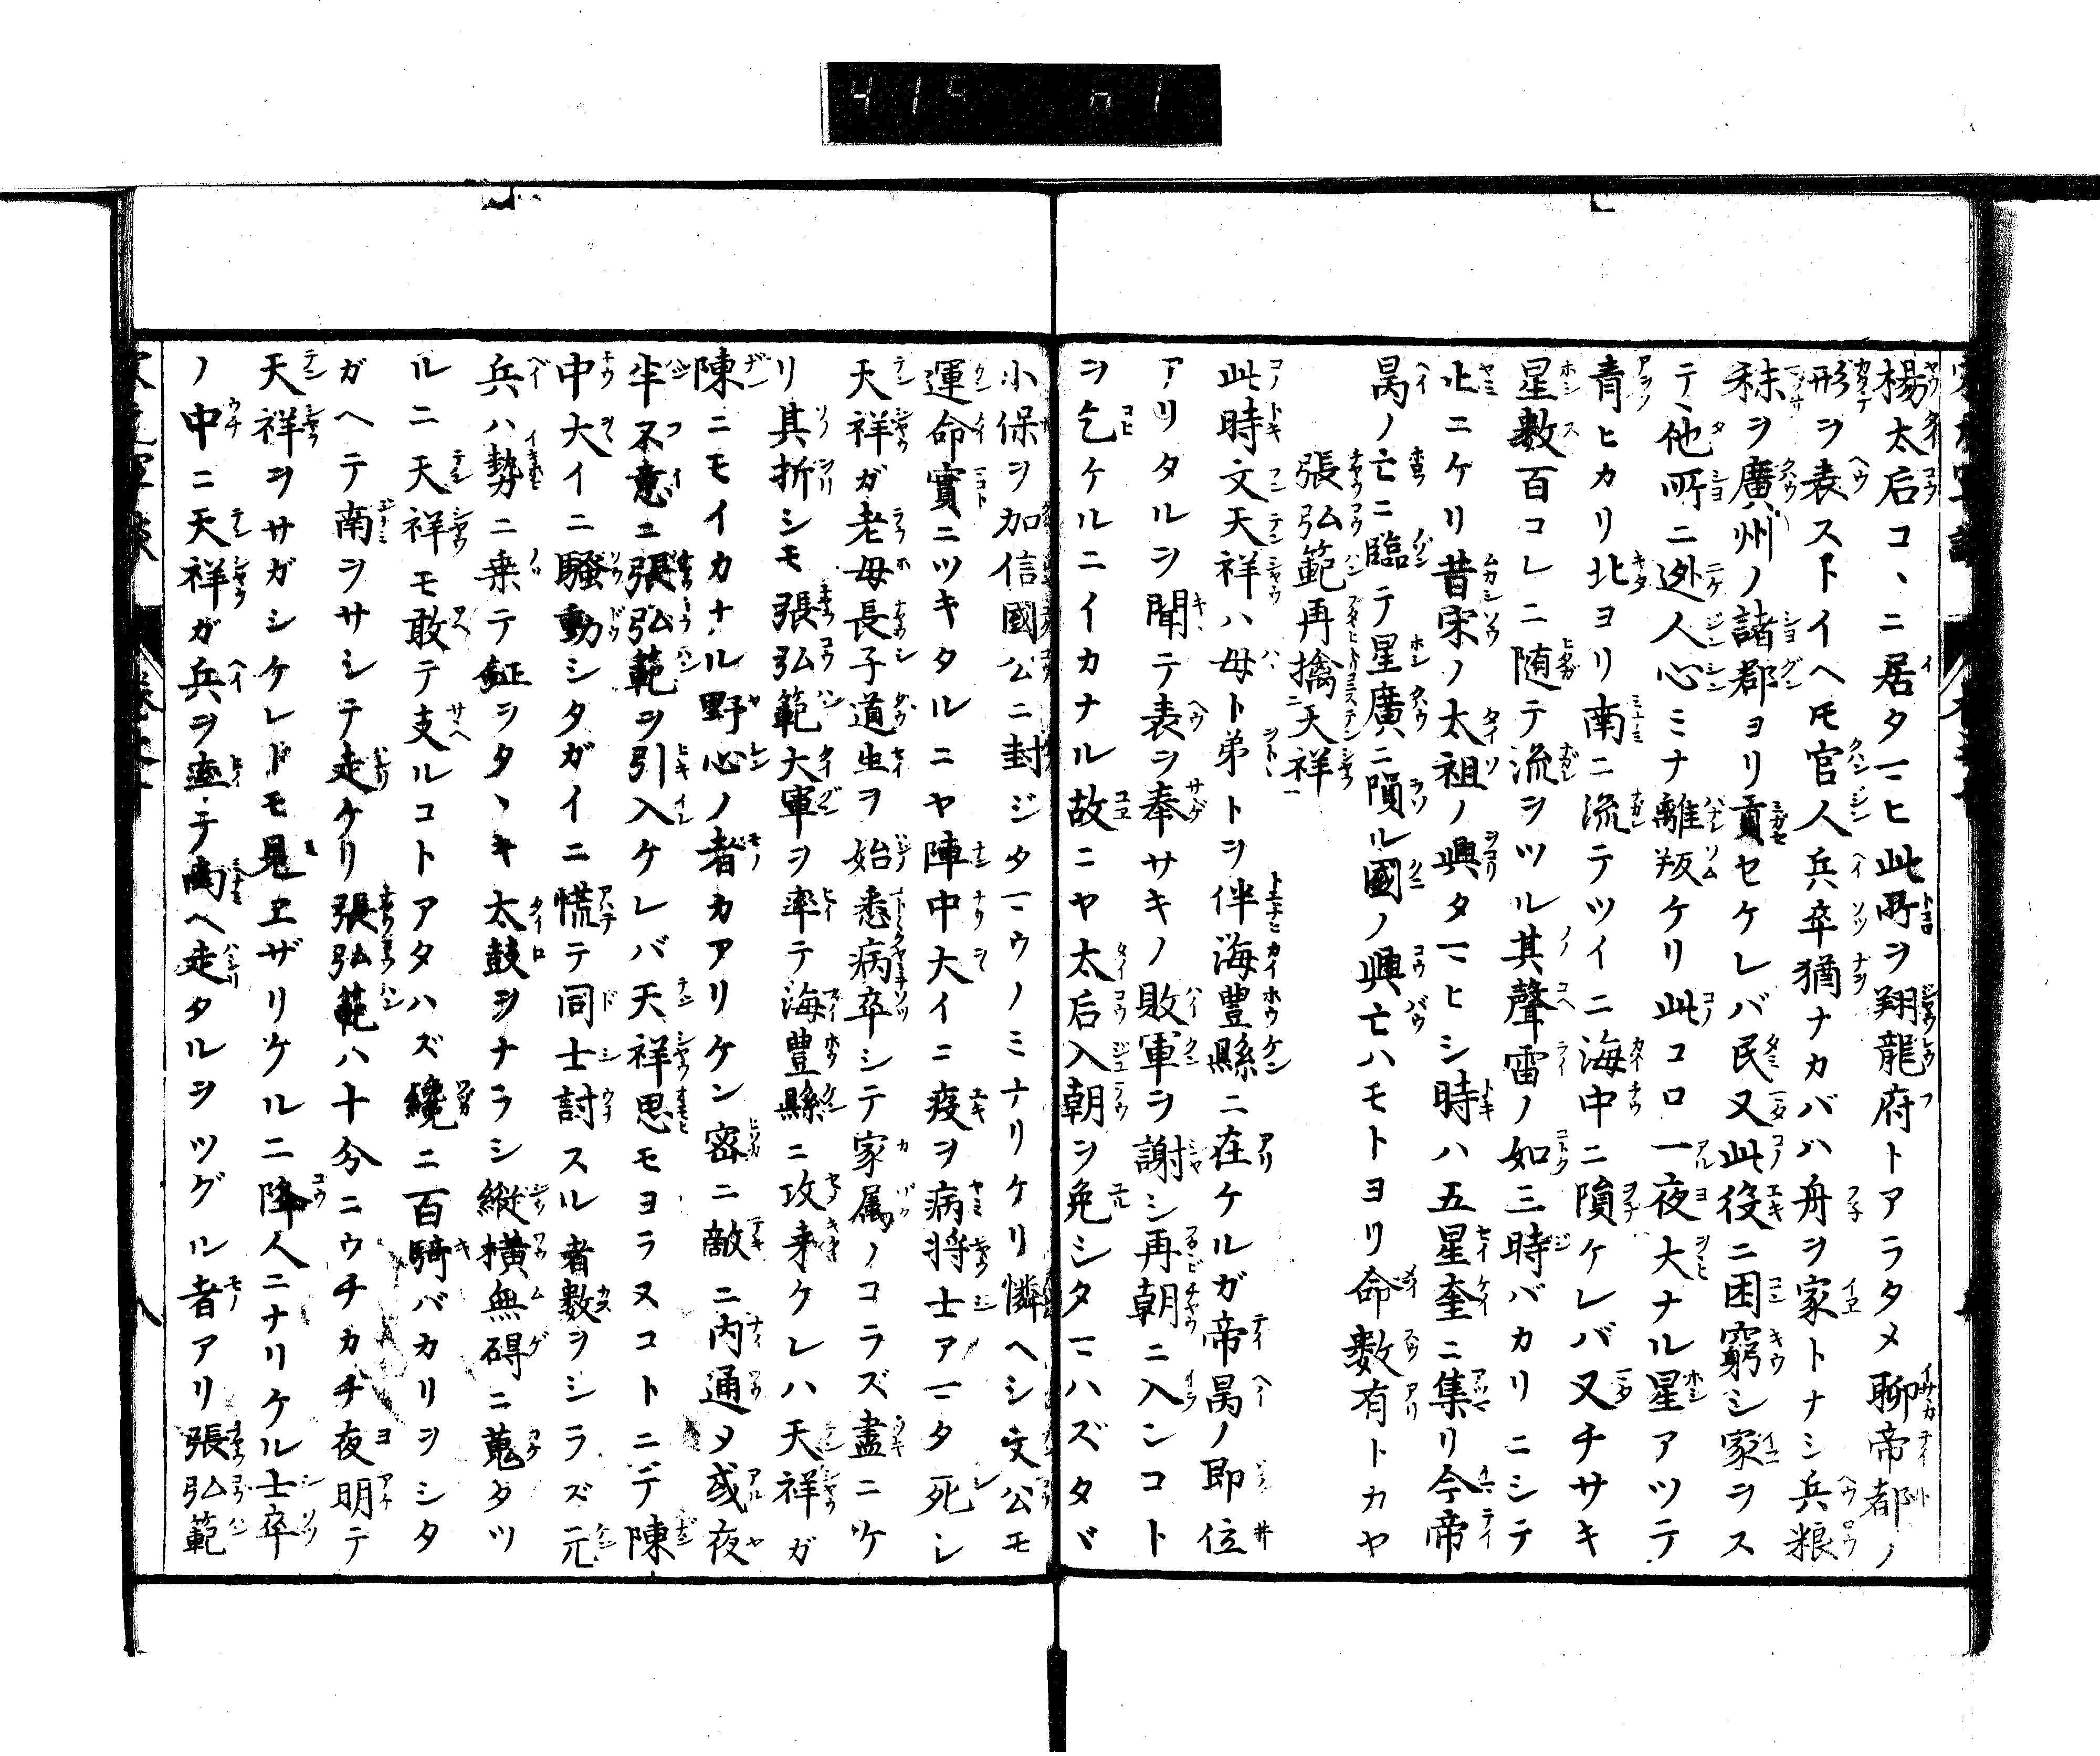 楊太后コヽニ居タマヒ此所ヲ翔龍府トアラタメ聊帝都ノ
形ヲ表ストイヘトモ官人兵卒猶ナカバハ舟ヲ家トナシ兵粮
秣ヲ廣州ノ諸郡ヨリ貢セケレバ民又此役ニ困窮シ家ヲス
テヽ他所ニ迯人心ミナ離叛ケリ此コロ一夜大ナル星アツテ
青ヒカリ北ヨリ南ニ流テツイニ海中ニ隕ケレバ又チサキ
星數百コレニ随テ流ヲツル其聲雷ノ如三時バカリニシテ
止ニケリ昔宋ノ太祖ノ興タマヒシ時ハ五星奎ニ集リ今帝
昺ノ亡ニ臨テ星廣ニ隕ル國ノ興亡ハモトヨリ命數有トカヤ
張弘範再擒ニ天祥一
此時文天祥ハ母ト弟トヲ伴海豊縣ニ在ケルガ帝昺ノ即位
アリタルヲ聞テ表ヲ奉サキノ敗軍ヲ謝シ再朝ニ入ンコト
ヲ乞ケルニイカナル故ニヤ太后入朝ヲ免シタマハズタヾ
小保ヲ加信國公ニ封ジタマウノミナリケリ憐ヘシ文公モ
運命實ニツキタルニヤ陣中大イニ疫ヲ病将士アマタ死シ
天祥ガ老母長子道生ヲ始悉病卒シテ家属ノコラズ盡ニケ
リ其折シモ張弘範大軍ヲ率テ海豊縣ニ攻来ケレハ天祥ガ
陳ニモイカナル野心ノ者カアリケン密ニ敵ニ内通メ或夜
半不意ニ張弘範ヲ引入ケレバ天祥思モヨラヌコトニテ陳
中大イニ騒動シタガイニ慌テ同士討スル者數ヲシラズ元
兵ハ勢ニ乗テ鉦ヲタヽキ太鼓ヲナラシ縦横無碍ニ蒐タツ
ルニ天祥モ敢テ支ルコトアタハズ纔ニ百騎バカリヲシタ
ガヘテ南ヲサシテ走ケリ張弘範ハ十分ニウチカチ夜明テ
天祥ヲサガシケレドモ見ヱザリケルニ降人ニナリケル士卒
ノ中ニ天祥ガ兵ヲ率テ南ヘ走タルヲツグル者アリ張弘範
八